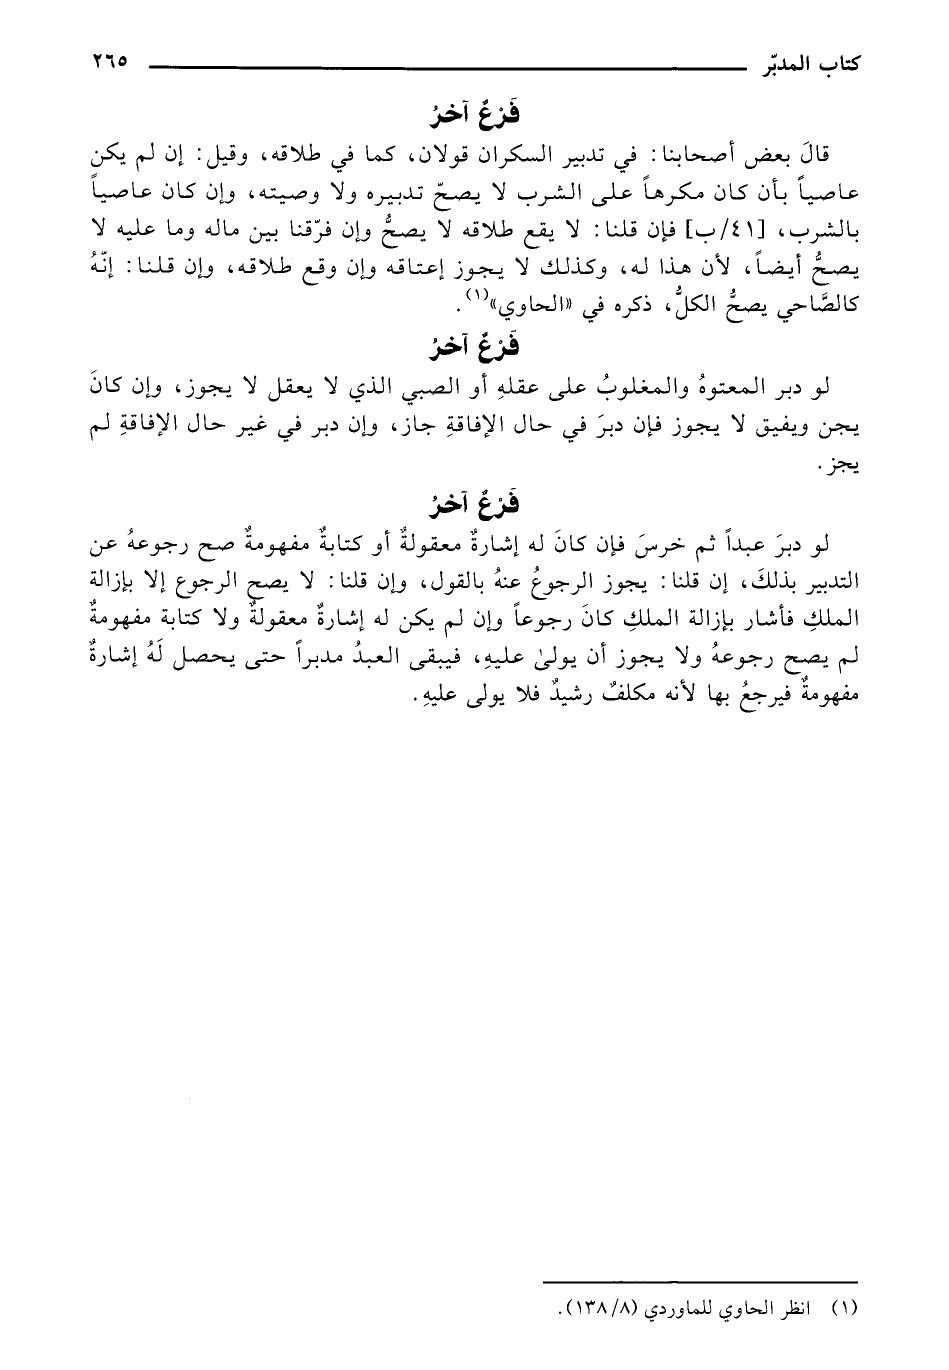 كتاب المدبّر ٢٦٥
فَرْعٌ آخرُ
قالَ بعض أصحابنا: في تدبير السكران قولان، كما في طلاقه، وقيل: إن لم يكن
عاصياً بأن كان مكرهاً على الشرب لا يصحّ تدبيره ولا وصيته، وإن كان عاصياً
بالشرب، [٤١/ب] فإن قلنا: لا يقع طلاقه لا يصحُّ وإن فرّقنا بين ماله وما عليه لا
يصحُّ أيضاً، لأن هذا له، وكذلك لا يجوز إعتاقه وإن وقع طلاقه، وإن قلنا: إنّهُ
كالصَّاحي يصحُّ الكلُّ، ذكره في «الحاوي»(١).
فَرْعٌ آخرُ
لو دبر المعتوهُ والمغلوبُ على عقلهِ أو الصبي الذي لا يعقل لا يجوز، وإن كانَ
يجن ويفيق لا يجوز فإن دبرَ في حال الإفاقةِ جاز، وإن دبر في غير حال الإفاقةِ لم
يجز.
فَرْعٌ آخرُ
لو دبرَ عبداً ثم خرسَ فإن كانَ له إشارةٌ معقولةٌ أو كتابةٌ مفهومةٌ صح رجوعهُ عن
التدبير بذلكَ، إن قلنا: يجوز الرجوعُ عنهُ بالقول، وإن قلنا: لا يصح الرجوع إلا بإزالة
الملكِ فأشار بإزالة الملكِ كانَ رجوعاً وإن لم يكن له إشارةٌ معقولةٌ ولا كتابة مفهومةٌ
لم يصح رجوعهُ ولا يجوز أن يولىٰ عليهِ، فيبقى العبدُ مدبراً حتى يحصل لَهُ إشارةٌ
مفهومةٌ فيرجعُ بها لأنه مكلفٌ رشيدٌ فلا يولى عليهِ.
(١) انظر الحاوي للماوردي (١٣٨/٨).